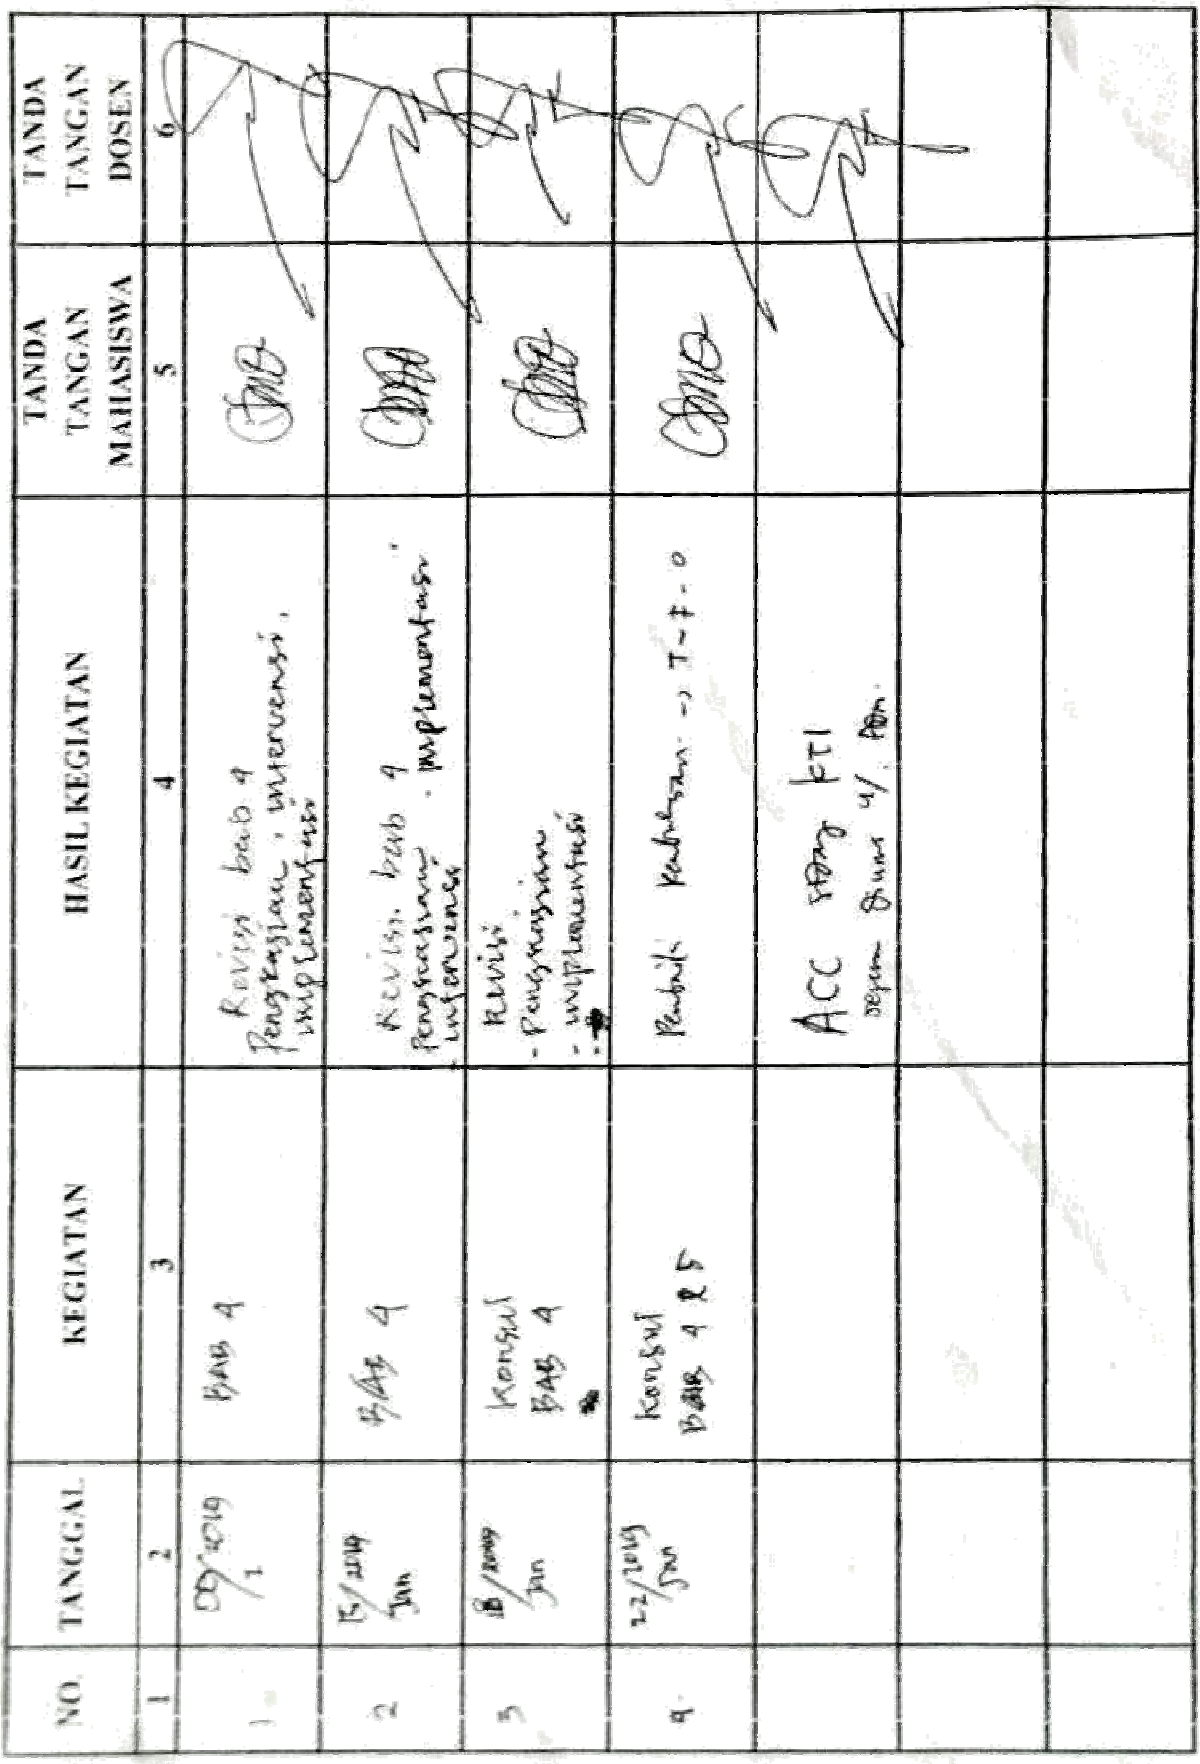 NO. TANGGAL KEGIATAN HASIL KEGIATAN TANDA TANGAN MAHASISWA TANDA TANGAN DOSEN
1 2 3 4 5 6
1 09/2019 BAB 4 Revisi bab 4
/1 Pengkajian, intervensi,
implementasi
2 15/2019 BAB 4 Revisi bab 4
Jan Pengkajian . implementasi
- intervensi
3 18/2019 Konsul Revisi
Jan BAB 4 - Pengkajian
- implementasi
4. 22/2019 Konsul
Jan BAB 4 & 5 -> T-F-O
ACC KTI